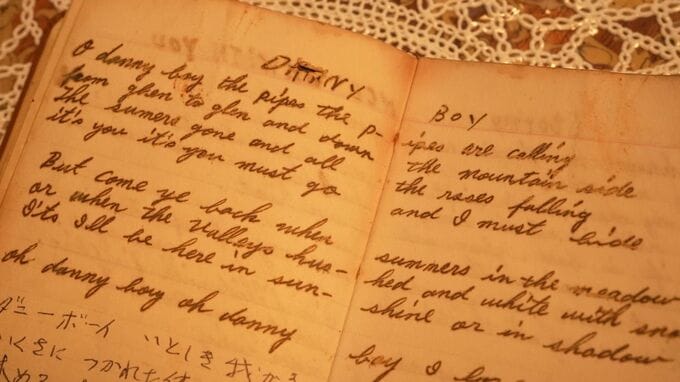 DANNY BOY
O danny boy the pipes the p- ipes are calling
from glen to glen and down the mountain side
The sumers gone and all the roses falling
it's you it's you must go and I must bide
But come ye back when summers in the meadow
or when the valleys hus- hed and white with sno
Its I'll be here in sun- shine or in shadow
oh danny boy oh danny boy I
ダニーボーイ いとしき 我が
いくさに つかれた